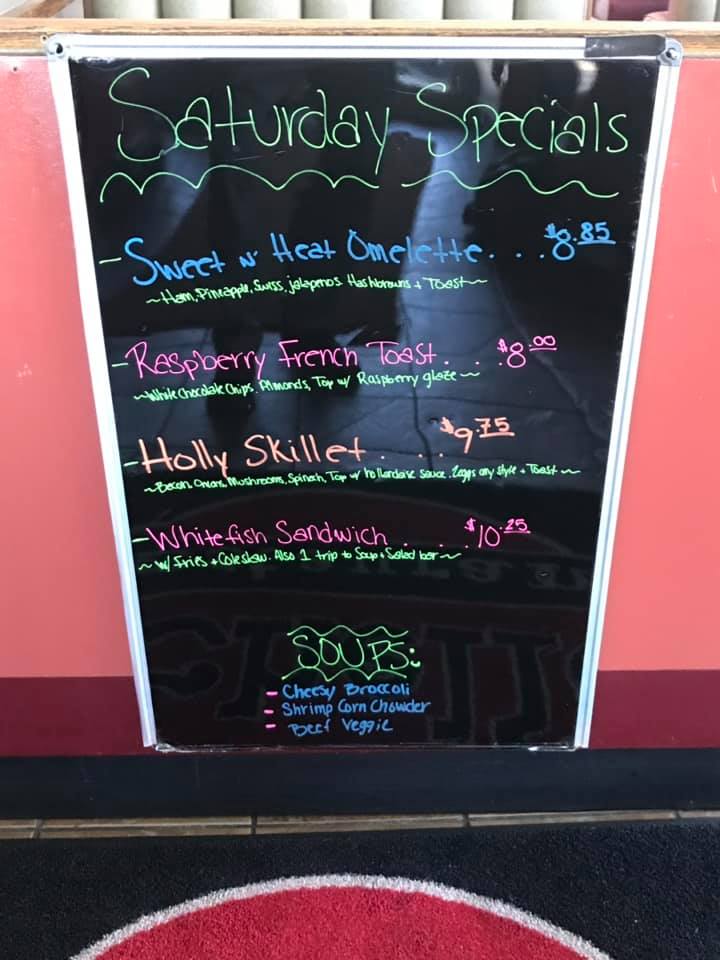 Saturday Specials
- Sweet n' Heat Omelette . . . $8.85
~Ham, Pineapple, Swiss, jalapenos. Hashbrowns + Toast~
- Raspberry French Toast . . . $8.00
~White Chocolate Chips, Almonds, Top w/ Raspberry glaze~
- Holly Skillet . . . $9.75
~Bacon, Onions, Mushrooms, Spinach, Top w/ hollandaise sauce. 2 eggs any style + Toast~
- Whitefish Sandwich . . . $10.25
~w/ Fries + Coleslaw. Also 1 trip to Soup + Salad bar~
SOUPS:
- Cheesy Broccoli
- Shrimp Corn Chowder
- Beef Veggie